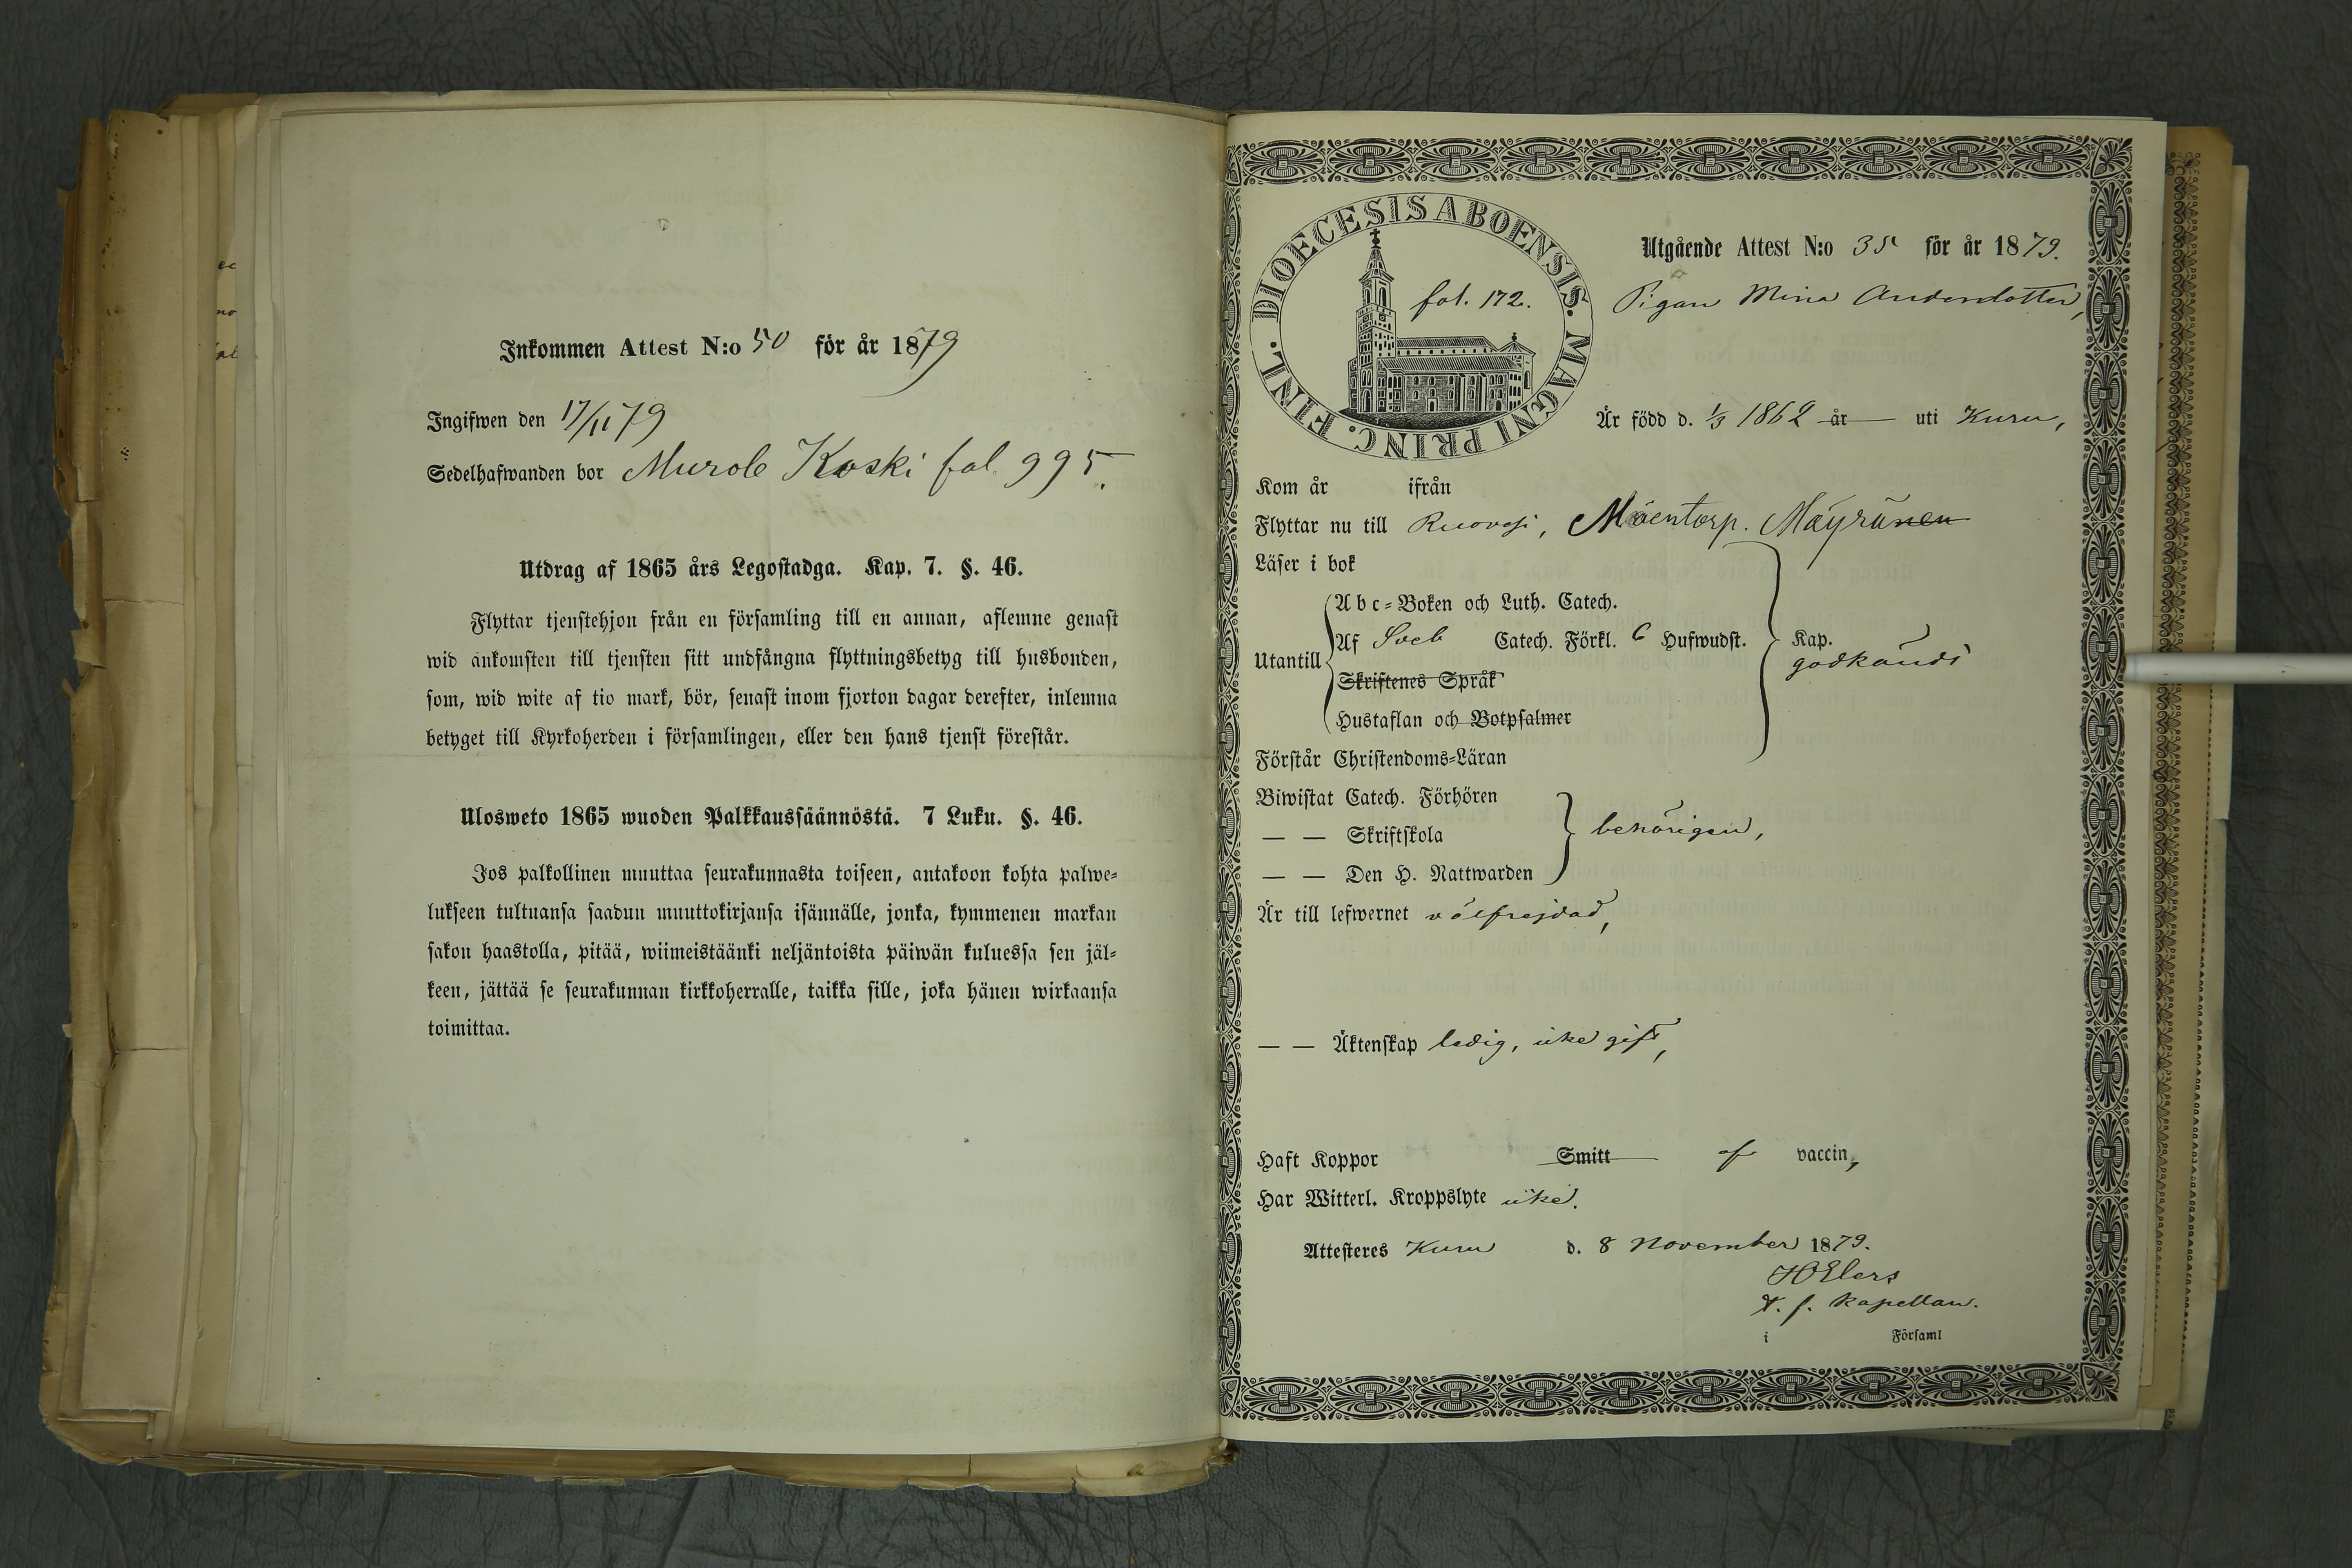 Inkommen Attest N:o 50 för år 1879
Ingifwen den 17/11 79
Sedelhafwanden bor Murole Koski fol. 995.
Utdrag af 1865 års Legostadga. Kap. 7. §. 46.
Flyttar tjenstehjon från en församling till en annan, aflemne genast
wid ankomsten till tjensten sitt undfångna flyttningsbetyg till husbonden,
som, wid wite af tio mark, bör, senast inom fjorton dagar derefter, inlemna
betyget till Kyrkoherden i församlingen, eller den hans tjenst förestår.
Ulosweto 1865 wuoden Palkkaussäännöstä. 7 Luku. §. 46.
Jos palkollinen muuttaa seurakunnasta toiseen, antakoon kohta palwe-
lukseen tultuansa saadun muuttokirjansa isännälle, jonka, kymmenen markan
sakon haastolla, pitää, wiimeistäänki neljäntoista päiwän kuluessa sen jäl-
keen, jättää se seurakunnan kirkkoherralle, taikka sille, joka hänen wirkaansa
toimittaa.
DIOECESIS ABOENSIS. MAGNI PRINC. FINL.
fol. 172.
Utgående Attest N:o 35 för år 1879.
Pigan Mina Andersdotter,
Är född d. 1/3 1862 år uti Kuru,
Kom år ifrån
Flyttar nu till Ruovesi, Mäyrä
Läser i bok
Utantill
Abc-Boken och Luth. Catech.
Af Sveb Catech. Förkl. 6 Hufwudst.
Skriftenes Språk
Hustaflan och Botpsalmer
Kap.
godkändt
Förstår Christendoms-Läran
Biwistat Catech. Förhören
— — Skriftskola
— — Den H. Nattwarden
behörigen,
Är till lefwernet välfrejdad,
— — Äktenskap ledig, icke gift,
Haft Koppor Smitt af vaccin,
Har Witterl. Kroppslyte icke.
Attesteres Kuru d. 8 November 1879.
HElers
t. f. Kapellan.
i Församl